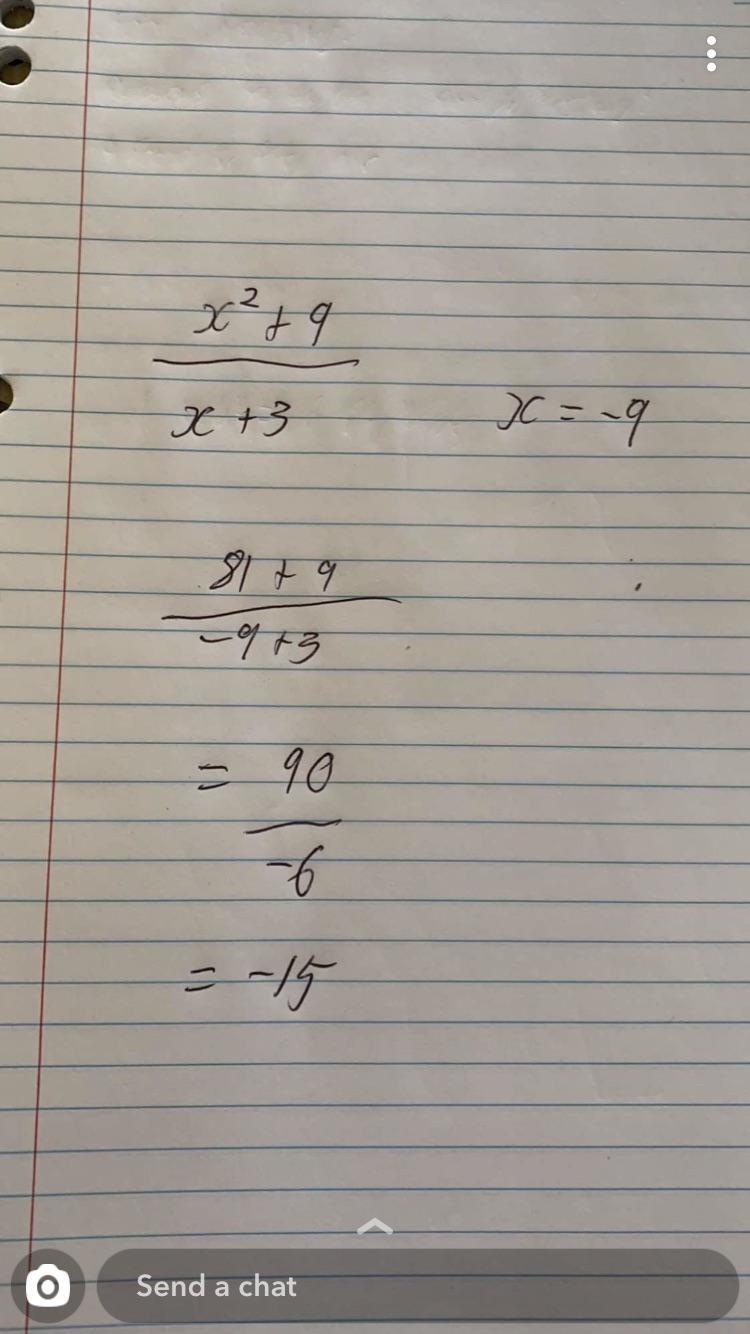 x² + 9
x + 3
x = -9
81 + 9
-9 + 3
= 90
-6
= -15
Send a chat